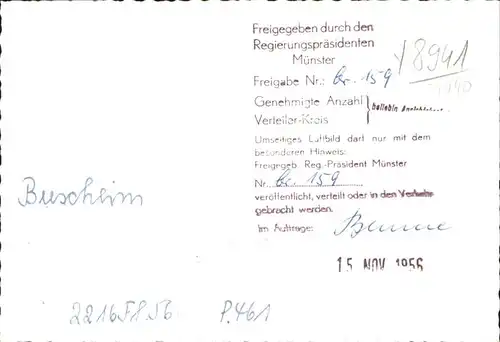 Freigegeben durch den
Regierungspräsidenten
Münster
Freigabe Nr.: Gr. 159
Y 8941
1140
Genehmigte Anzahl
Verteiler-Kreis
beliebig
Umseitiges Luftbild darf nur mit dem
besonderen Hinweis:
Freigegeb. Reg.-Präsident Münster
Nr. Gr. 159
veröffentlicht, verteilt oder in den Verkehr
gebracht werden.
Im Auftrage:
Buscheim
15 NOV 1956
2216F8.56 P.461